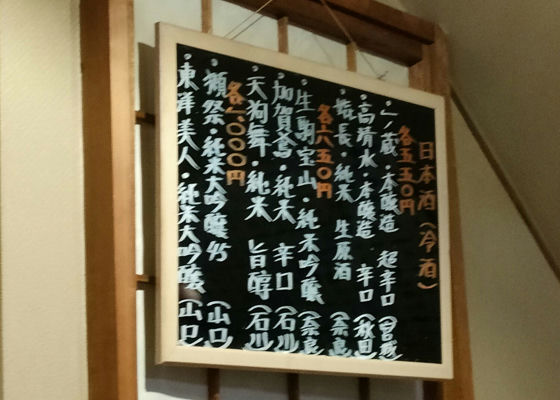 日本酒(冷酒)
各五五〇円
・一ノ蔵・本醸造 超辛口(宮城)
・高清水・本醸造 辛口(秋田)
・長・純米 生原酒(奈良)
各六五〇円
・生駒宝山・純米吟醸(奈良)
・加賀鳶・純米 辛口(石川)
・天狗舞・純米 旨醇(石川)
各一、〇〇〇円
・獺祭・純米大吟醸45(山口)
・東洋美人・純米大吟醸(山口)